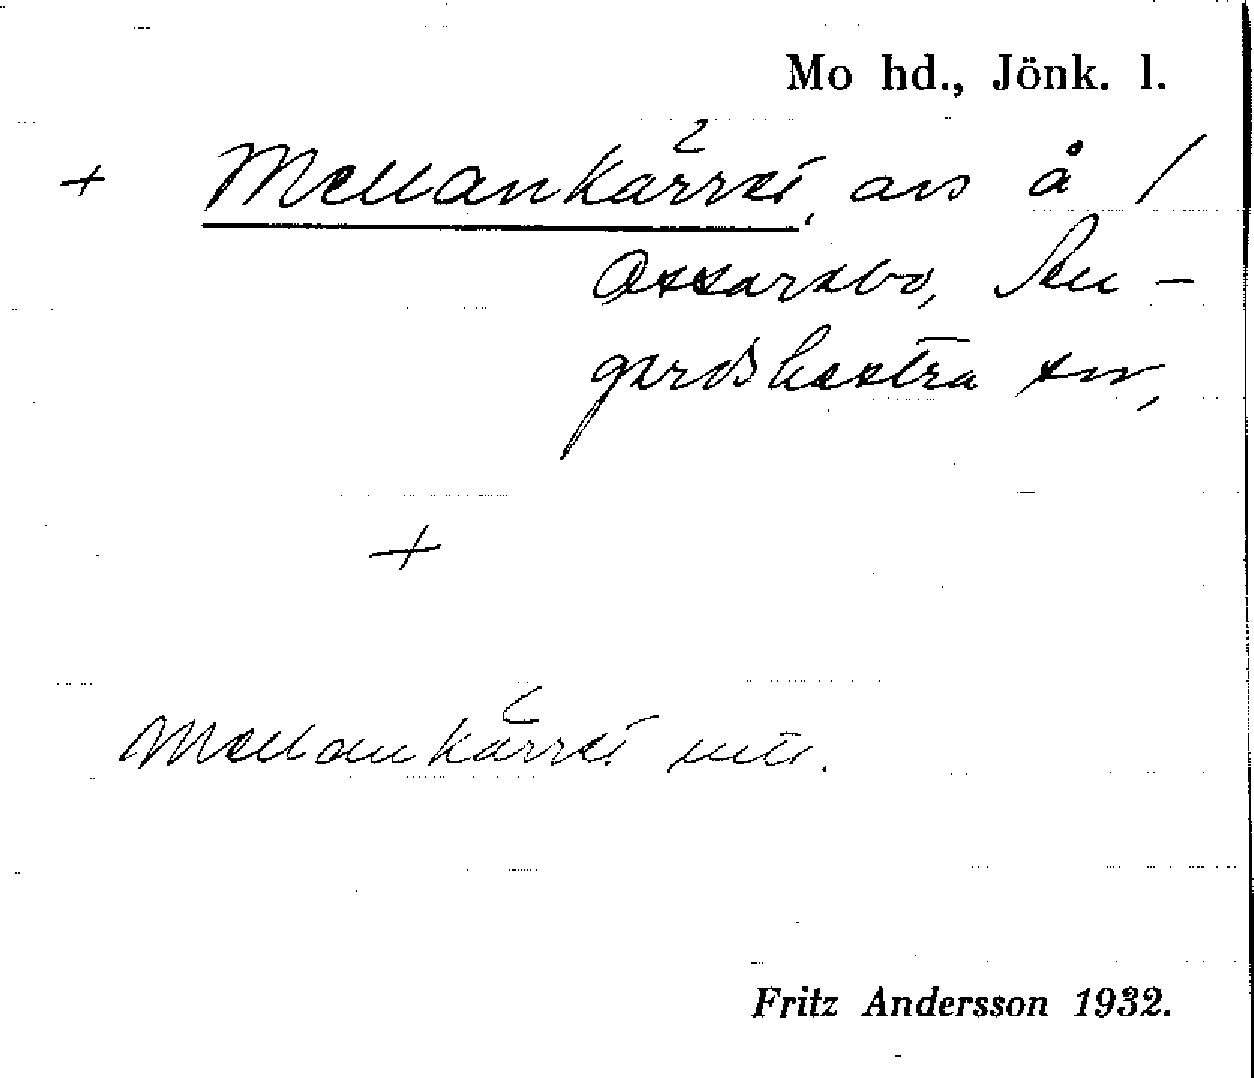 Mo hd., Jönk. l.
+ Mellankärret, avs å /
Ossarsbo, An-
gerdshestra sn,
+
Mellankärret utt.
Fritz Andersson 1932.